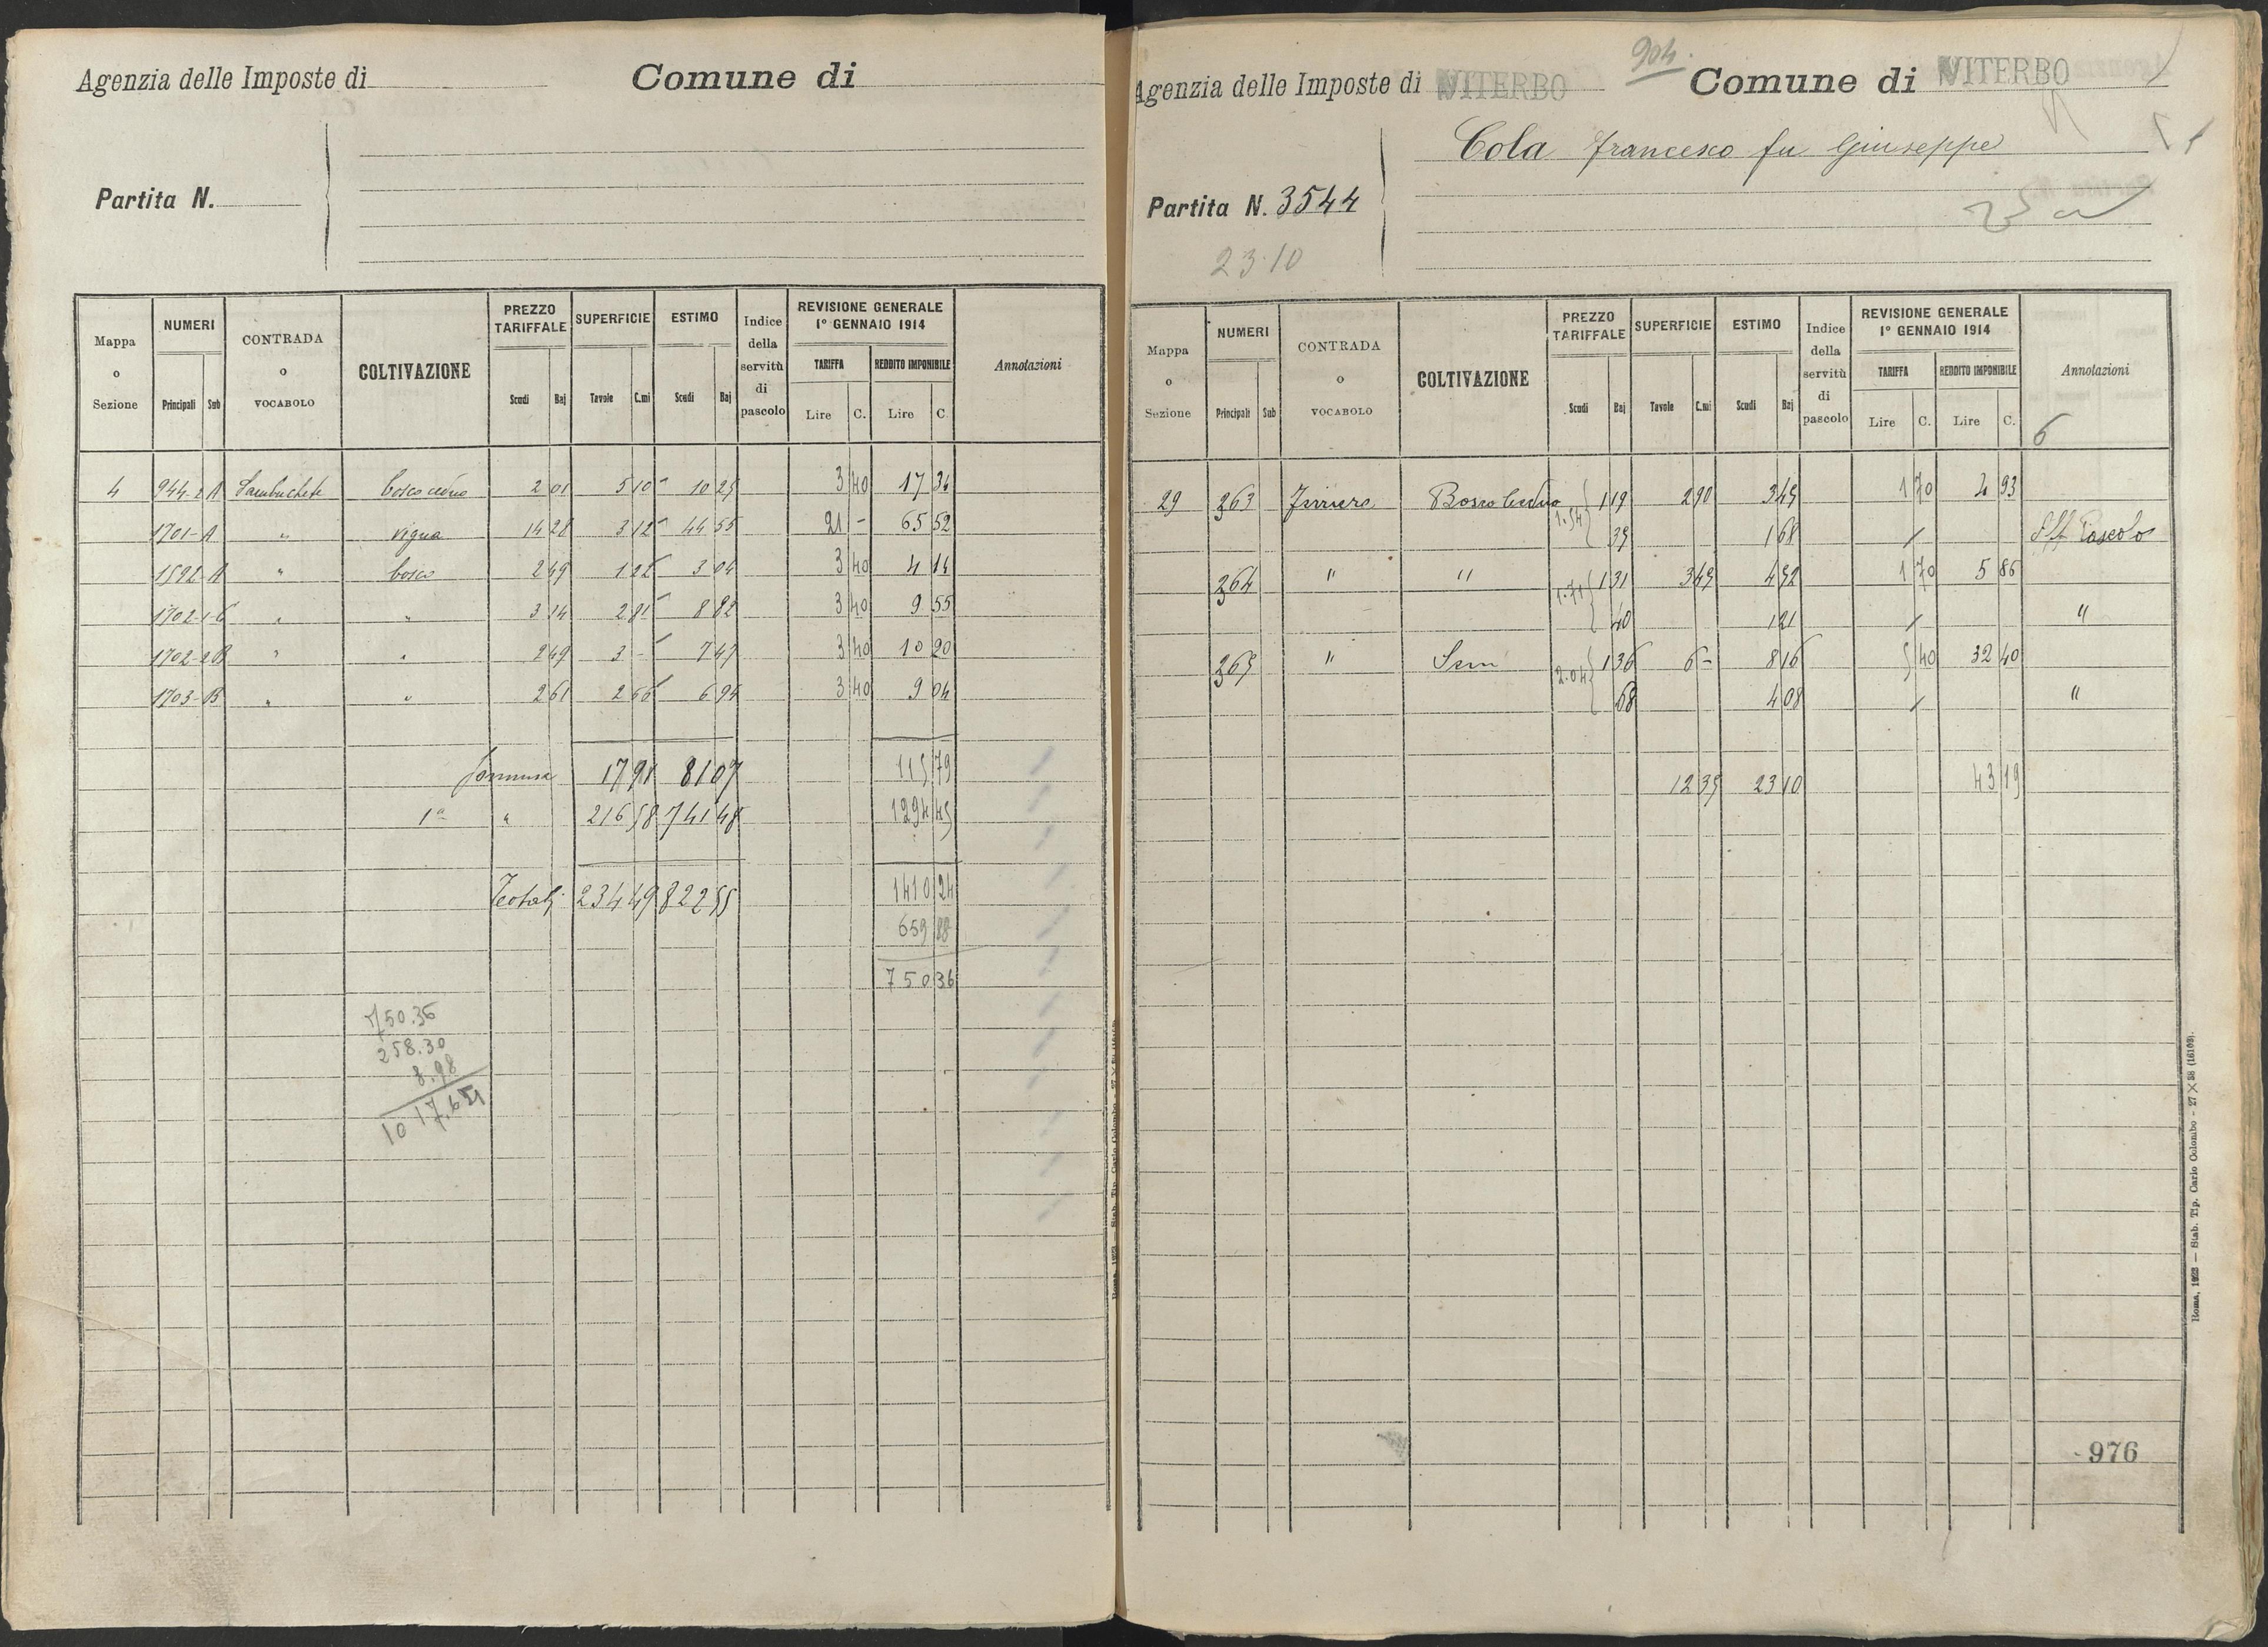 Agenzia delle Imposte di Comune di
Partita N.
Mappa o Sezione NUMERI Principali Sub CONTRADA o VOCABOLO COLTIVAZIONE PREZZO TARIFFALE Scudi Baj SUPERFICIE Tavole C.mi ESTIMO Scudi Baj Indice della servitù di pascolo REVISIONE GENERALE 1° GENNAIO 1914 TARIFFA Lire C. REDDITO IMPONIBILE Lire C. Annotazioni
4 944-2 A Sambuchete bosco ceduo 2 01 5 10 10 25 3 40 17 34
1701-A " vigna 14 28 3 12 44 55 21 - 65 52
1592-A " bosco 2 49 1 22 3 04 3 40 4 14
1702-1-C " " 3 14 2 81 8 82 3 40 9 55
1702-2B " " 2 49 3 - 7 47 3 40 10 20
1703-B " " 2 61 2 66 6 94 3 40 9 04
Somma 17 91 81 07 115 79
1a " 216 58 741 48 1294 45
Totali 234 49 822 55 1410 24
659 88
750 36
750.36
258.30
8.98
1017.64
Agenzia delle Imposte di VITERBO 904. Comune di VITERBO
Cola Francesco fu Giuseppe
Partita N. 3544
23.10
Mappa o Sezione NUMERI Principali Sub CONTRADA o VOCABOLO COLTIVAZIONE PREZZO TARIFFALE Scudi Baj SUPERFICIE Tavole C.mi ESTIMO Scudi Baj Indice della servitù di pascolo REVISIONE GENERALE 1° GENNAIO 1914 TARIFFA Lire C. REDDITO IMPONIBILE Lire C. Annotazioni
6
29 263 Bosco Ceduo 1.54 1 19 2 90 3 45 1 70 4 93
35 1 68 / Pascolo
264 " " 1.71 1 31 3 45 4 52 1 70 5 86
40 1 21 / "
265 " Sem 2.04 1 36 6 - 8 16 5 40 32 40
68 4 08 / "
12 35 23 10 43 19
976
Roma, 1923 — Stab. Tip. Carlo Colombo - 27 × 38 (16103).